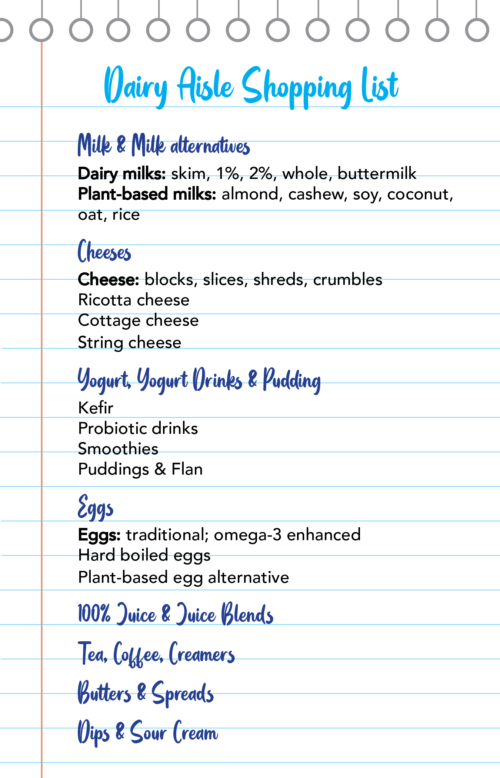 Dairy Aisle Shopping List
Milk & Milk alternatives
Dairy milks: skim, 1%, 2%, whole, buttermilk
Plant-based milks: almond, cashew, soy, coconut,
oat, rice
Cheeses
Cheese: blocks, slices, shreds, crumbles
Ricotta cheese
Cottage cheese
String cheese
Yogurt, Yogurt Drinks & Pudding
Kefir
Probiotic drinks
Smoothies
Puddings & Flan
Eggs
Eggs: traditional; omega-3 enhanced
Hard boiled eggs
Plant-based egg alternative
100% Juice & Juice Blends
Tea, Coffee, Creamers
Butters & Spreads
Dips & Sour Cream